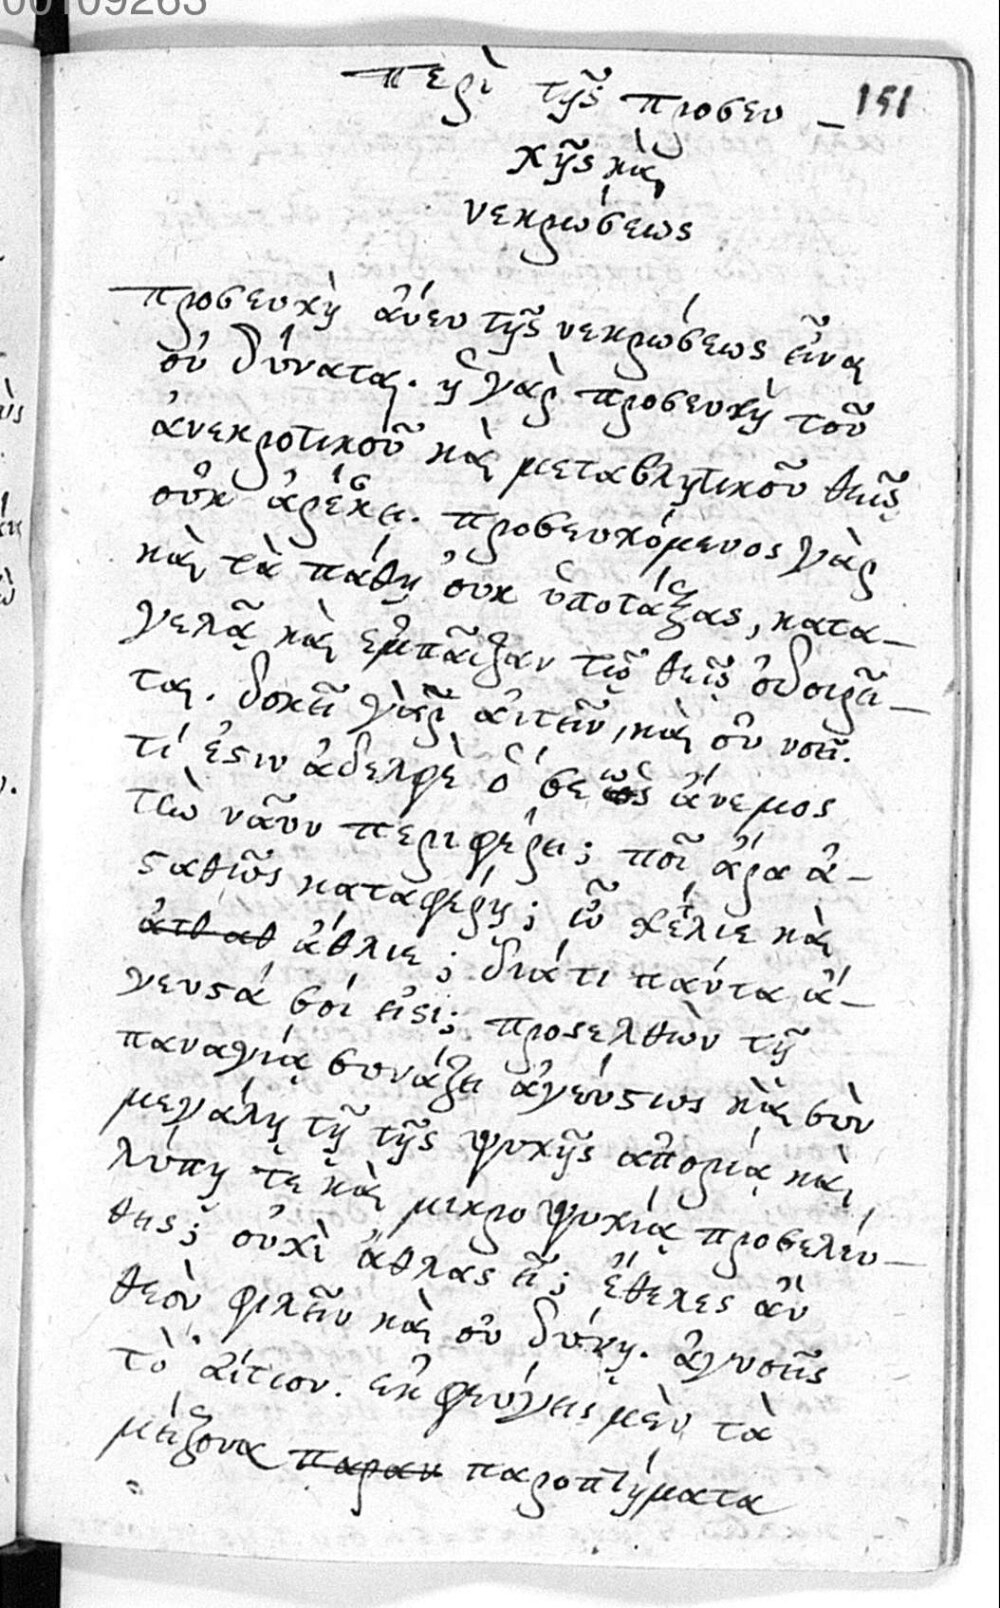 00109263
περὶ τῆς προσευ – 151
χῆς καὶ
νεκρώσεως
προσευχὴ ἄνευ τῆς νεκρώσεως εἶναι
οὐ δύναται. ἡ γὰρ προσευχὴ τοῦ
ἀνεκροτικοῦ καὶ μεταβλητικοῦ θεῷ
οὐκ ἀρέσκει. προσευχόμενος γὰρ
καὶ τὰ πάθη οὐκ ὑποτάξας, κατα–
γελᾷ καὶ ἐμπαῖξαν τῷ θεῷ
ται. δοκεῖ γὰρ αἰτεῖν, καὶ οὐ νοεῖ.
τί ἐστιν ἀδελφὲ ὁ σε ὡς ἄνεμος
τὼ ναῦν περιφέρει; ποῖ ἄρα ἀ–
σταθῶς καταφέρῃ; ὦ καὶ
ἄθλιε; διάτι πάντα ἄ–
γευστά σοί εἰσι; προσελθὼν τῇ
παναγίᾳ συνάξει ἀγεύστως καὶ σὺν
μεγάλῃ τῇ τῆς ψυχῆς ἀπορίᾳ καὶ
λύπῃ τε καὶ μικροψυχίᾳ προσελεύ–
θεις; οὐχὶ ἄθλας εἶ; ἔθελες ἂν
θεὸν φιλεῖν καὶ οὐ δύνῃ. ἀγνοεῖς
τὸ αἴτιον. ἐκφεύγεις μὲν τὰ
μείζονα παραν παροπτήματα